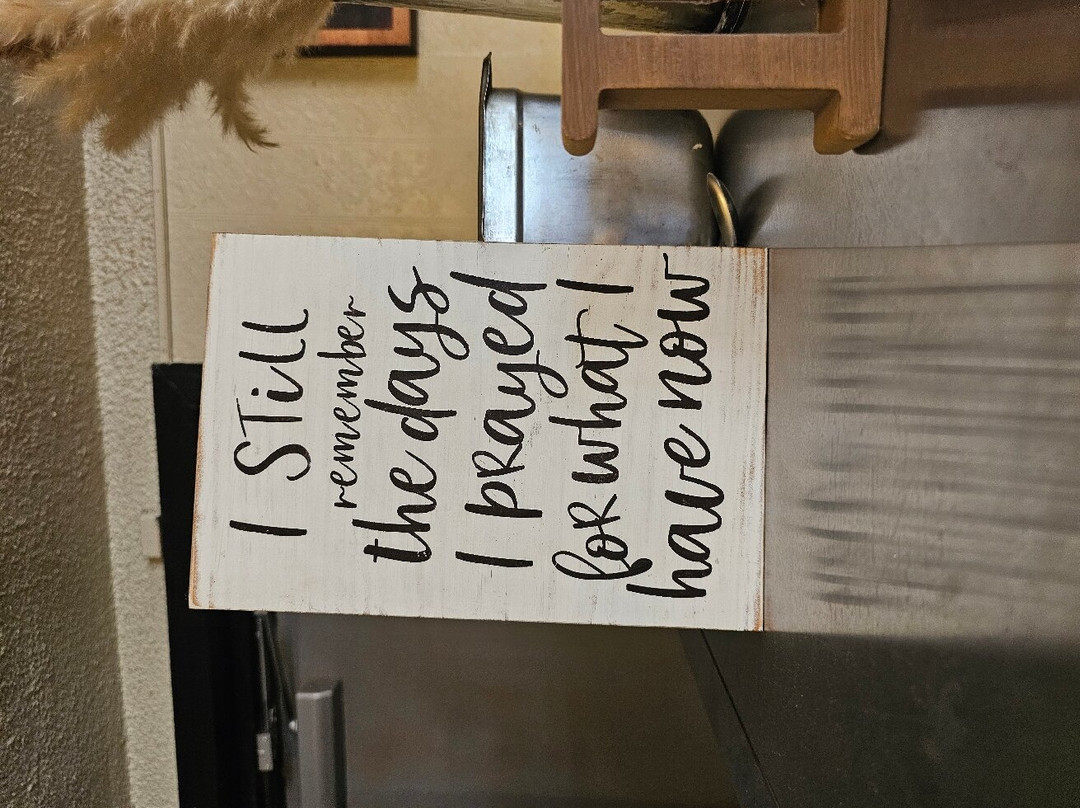 I STill
remember
the days
I pRayed
foR what I
have now